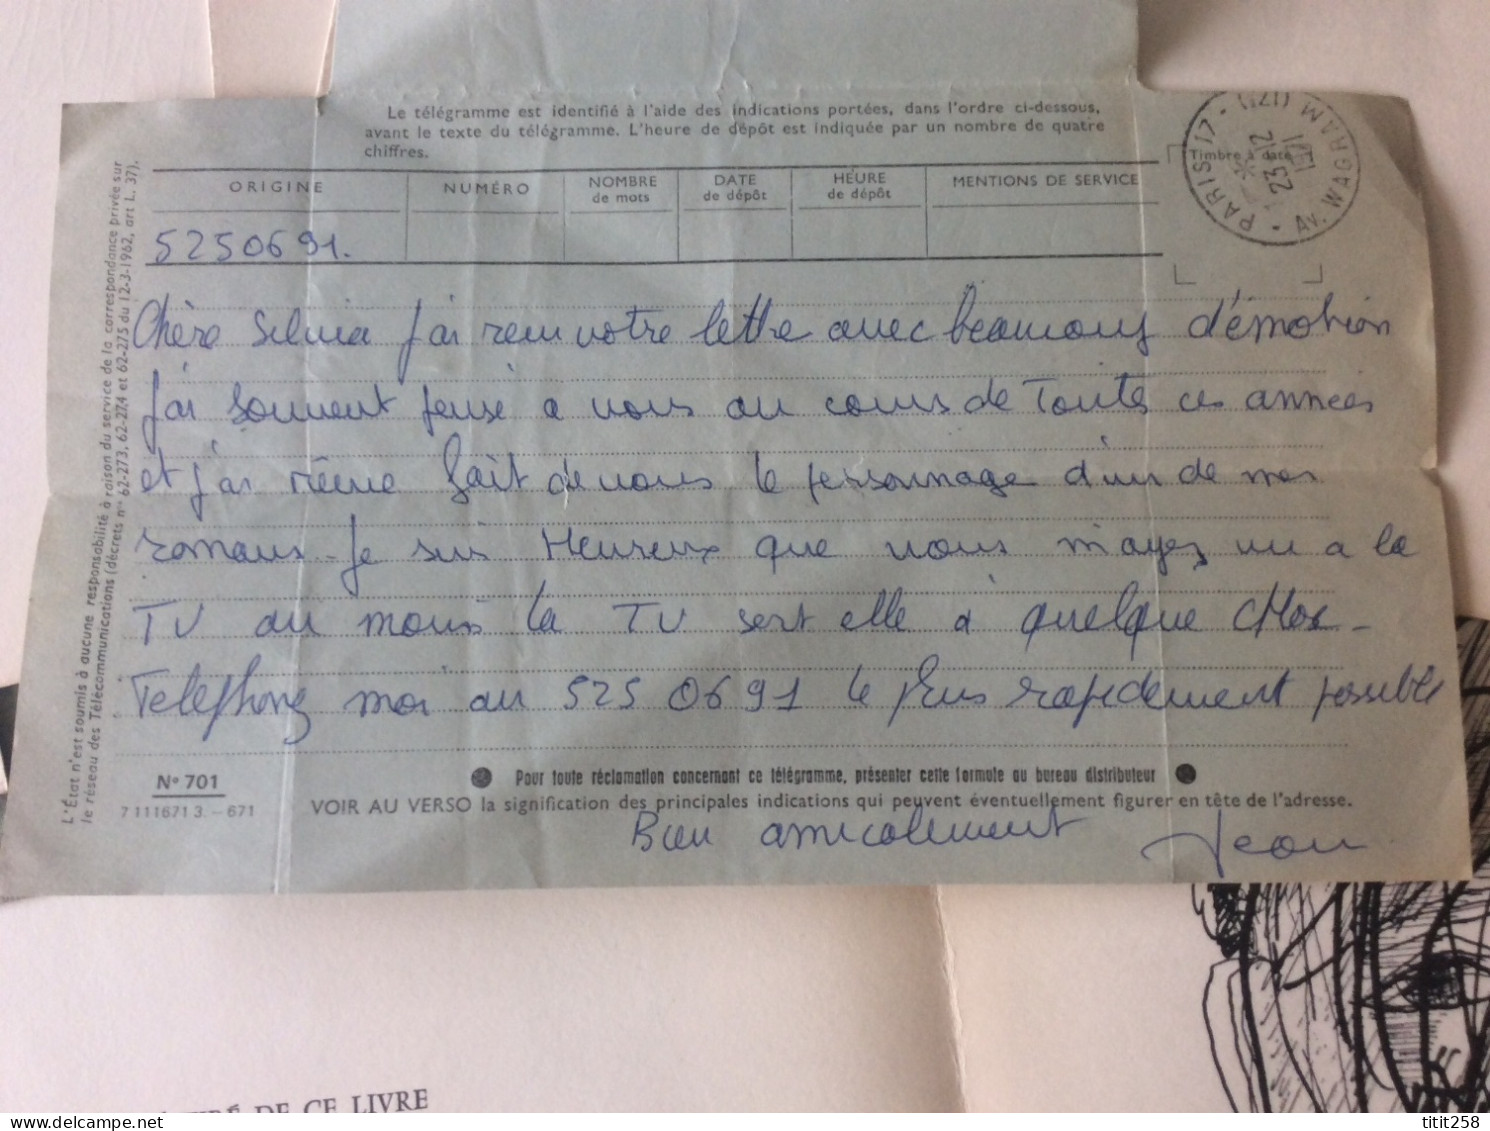 Le télégramme est identifié à l'aide des indications portées, dans l'ordre ci-dessous,
avant le texte du télégramme. L'heure de dépôt est indiquée par un nombre de quatre
chiffres.
ORIGINE
NUMÉRO
NOMBRE
de mots
DATE
de dépôt
HEURE
de dépôt
MENTIONS DE SERVICE
Timbre à date
PARIS 17 - Av. WAGRAM (17E)
23-12
1971
5250691.
Chère Silvia j'ai reçu votre lettre avec beaucoup d'émotion
j'ai souvent pensé à vous au cours de Toutes ces années
et j'ai même fait de vous le personnage d'un de mes
romans - Je suis Heureux que vous m'ayez vu a la
TV au moins la TV sert elle à quelque chose -
Telephonez moi au 525 0691 le plus rapidement possible
N° 701
7 111671 3. - 671
Pour toute réclamation concernant ce télégramme, présenter cette formule au bureau distributeur
VOIR AU VERSO la signification des principales indications qui peuvent éventuellement figurer en tête de l'adresse.
Bien amicalement Jean
L'État n'est soumis à aucune responsabilité à raison du service de la correspondance privée sur
le réseau des Télécommunications (décrets nos 62-273, 62-274 et 62-275 du 12-3-1962, art L. 37).
DE CE LIVRE
titit258